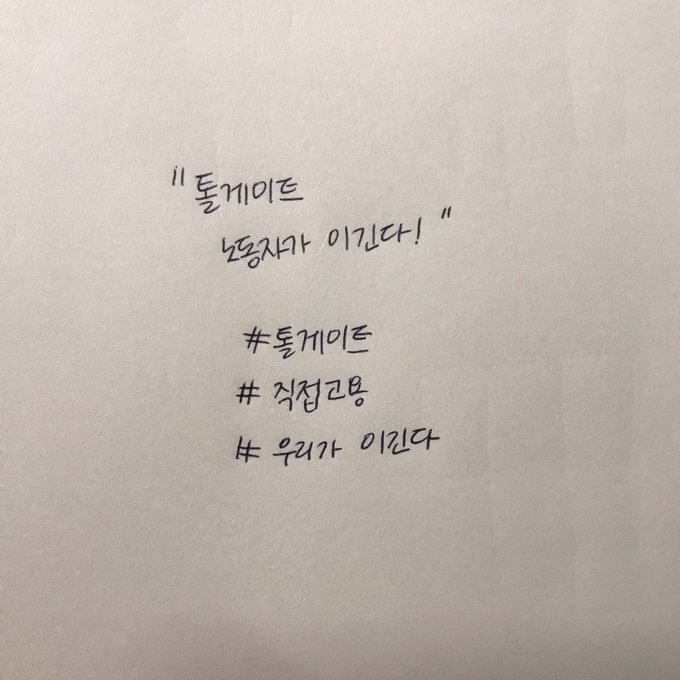 "톨게이트
노동자가 이긴다!"
#톨게이트
# 직접고용
# 우리가 이긴다